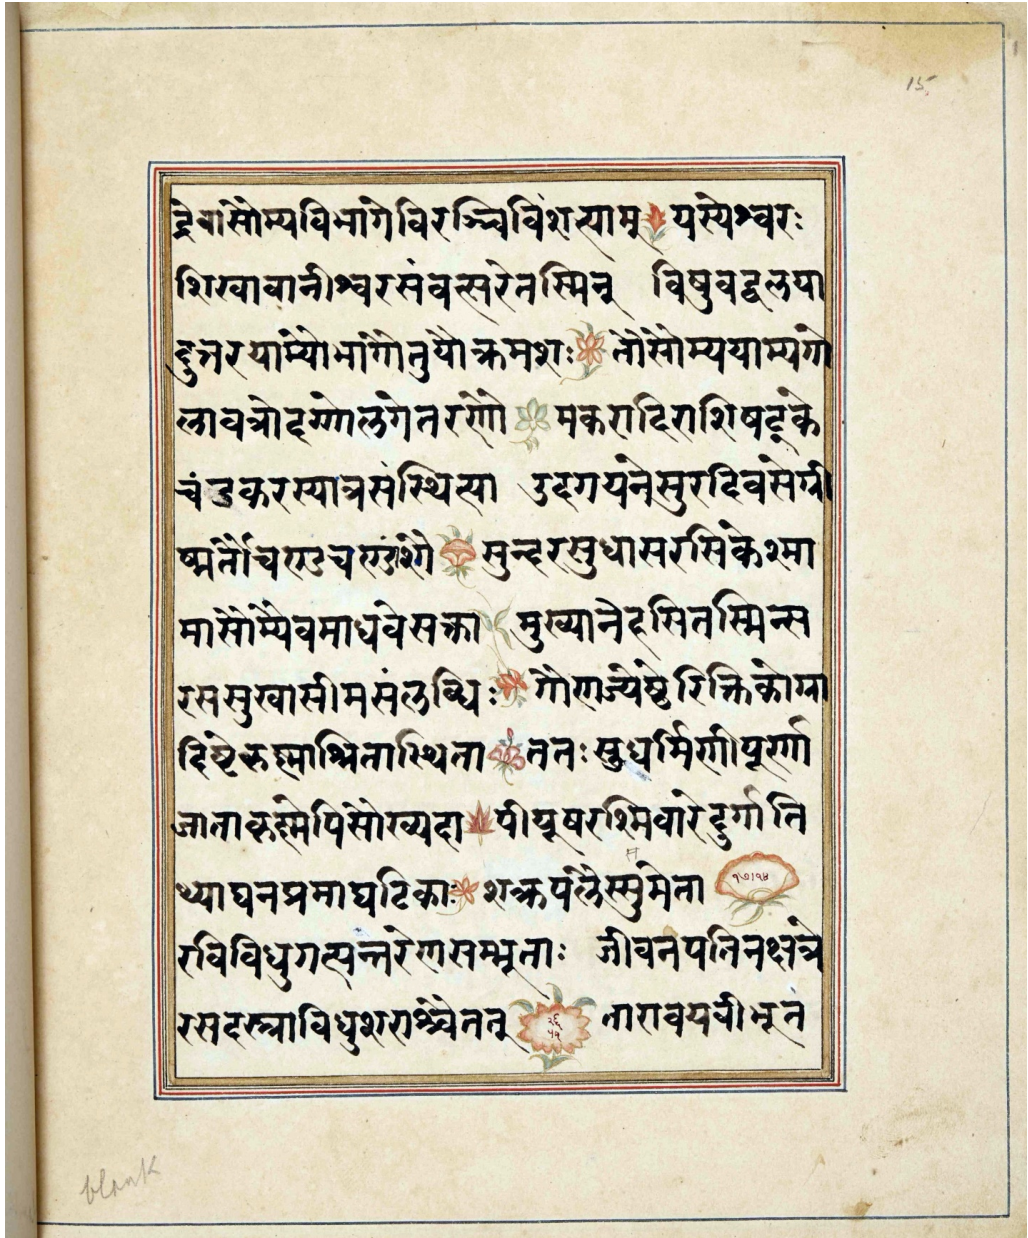 15
द्देवासौम्यविभागेविरञ्चिविंशत्यामु यस्येश्वरः
शिखावानीश्वरसंवत्सरेतस्मिन् विषुवद्वलया
दुत्तरयाम्यौभागौतुयौक्रमशः तौसौम्ययाम्यगो
लावत्रोदग्गोलगेतरणौ मकरादिराशिषट्के
चंडकरस्यात्रसंस्थित्या उदगयनेसुरदिवसेग्री
ष्मर्तौचण्डचण्डांशौ सुन्दरसुधासरसिकेश्मा
मासोम्येवमाधवेसक्ता मुख्यानेहसितस्मिन्स
रससुखासीमसंलब्धिः गौणज्येष्ठेरिक्तिकोग्रा
दिष्टेकृष्णाश्रितास्थिता ततः सुधर्मिणीपूर्णा
जाताकृष्णेपिसौख्यदा पीयूषरश्मिवारेदुर्गाति
थ्याघनप्रमाघटिकाः शक्रपलैस्सुमिता १७।१४
रविविधुगत्यन्तरेणसम्भूताः जीवनपतिनक्षत्रे
रसदस्त्राविधुशराश्चैतत् २६ ५१ नारावयवीभूत
blank